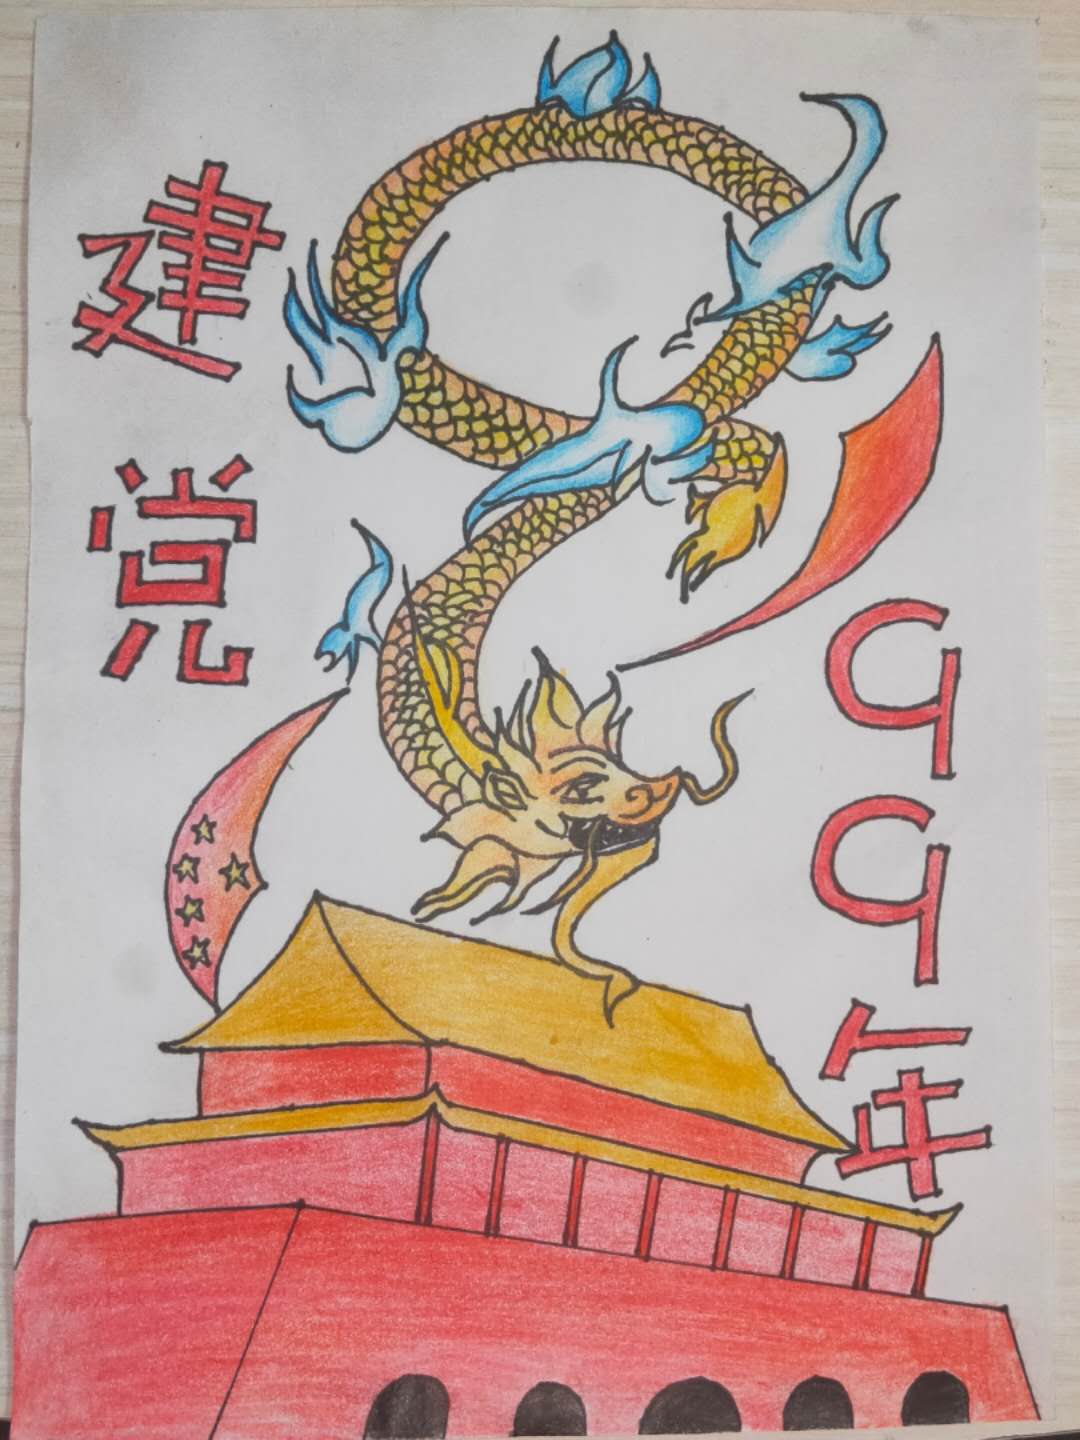 建党
99年